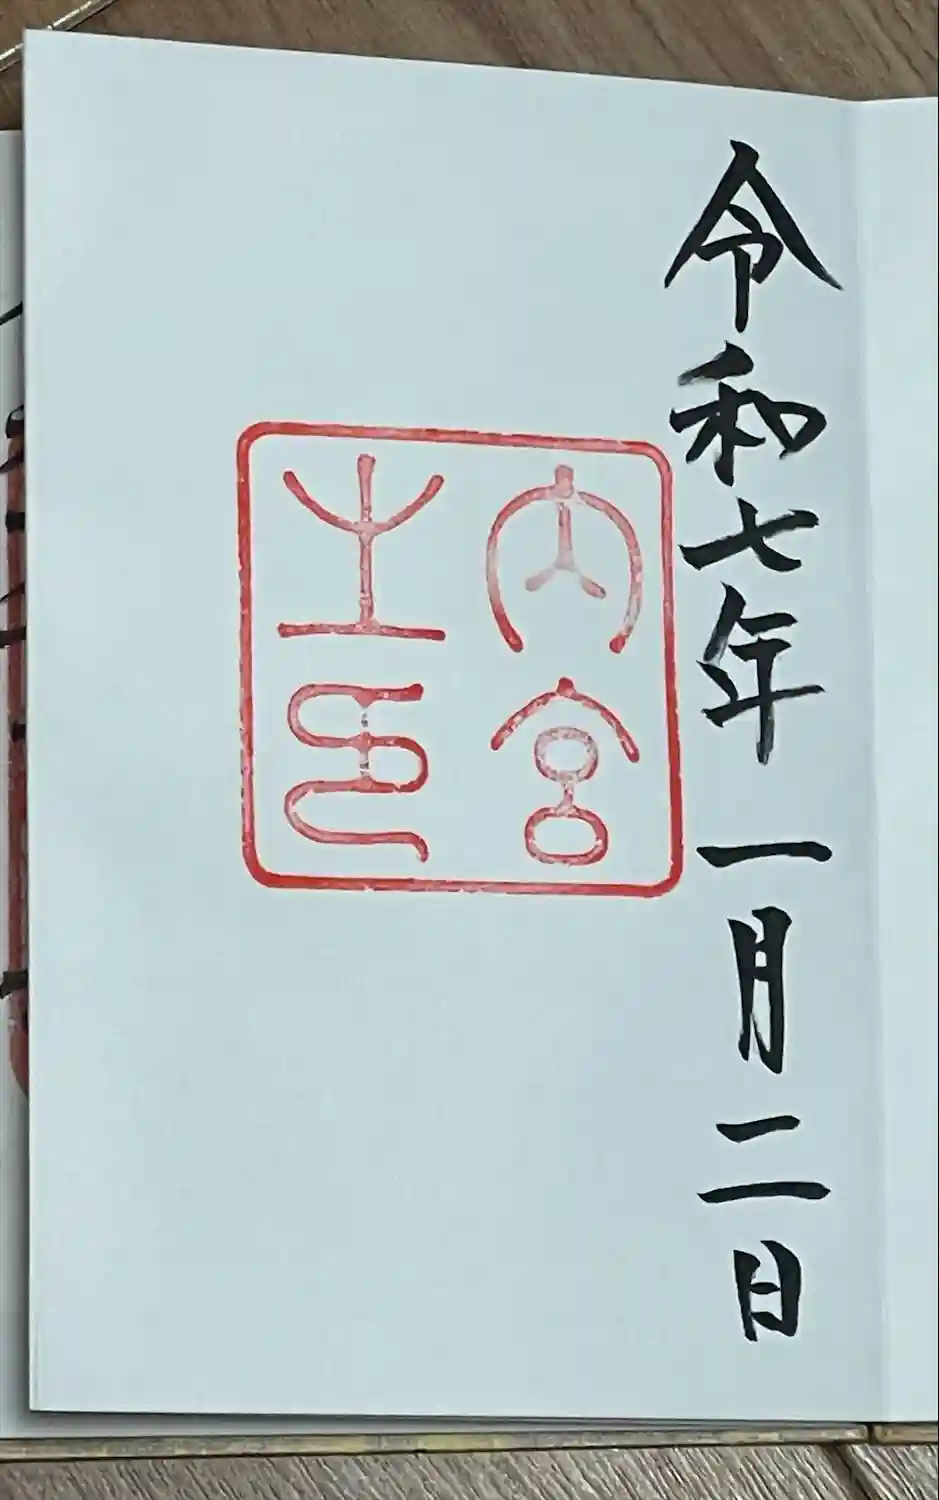 令和七年一月二日
内宮
之印